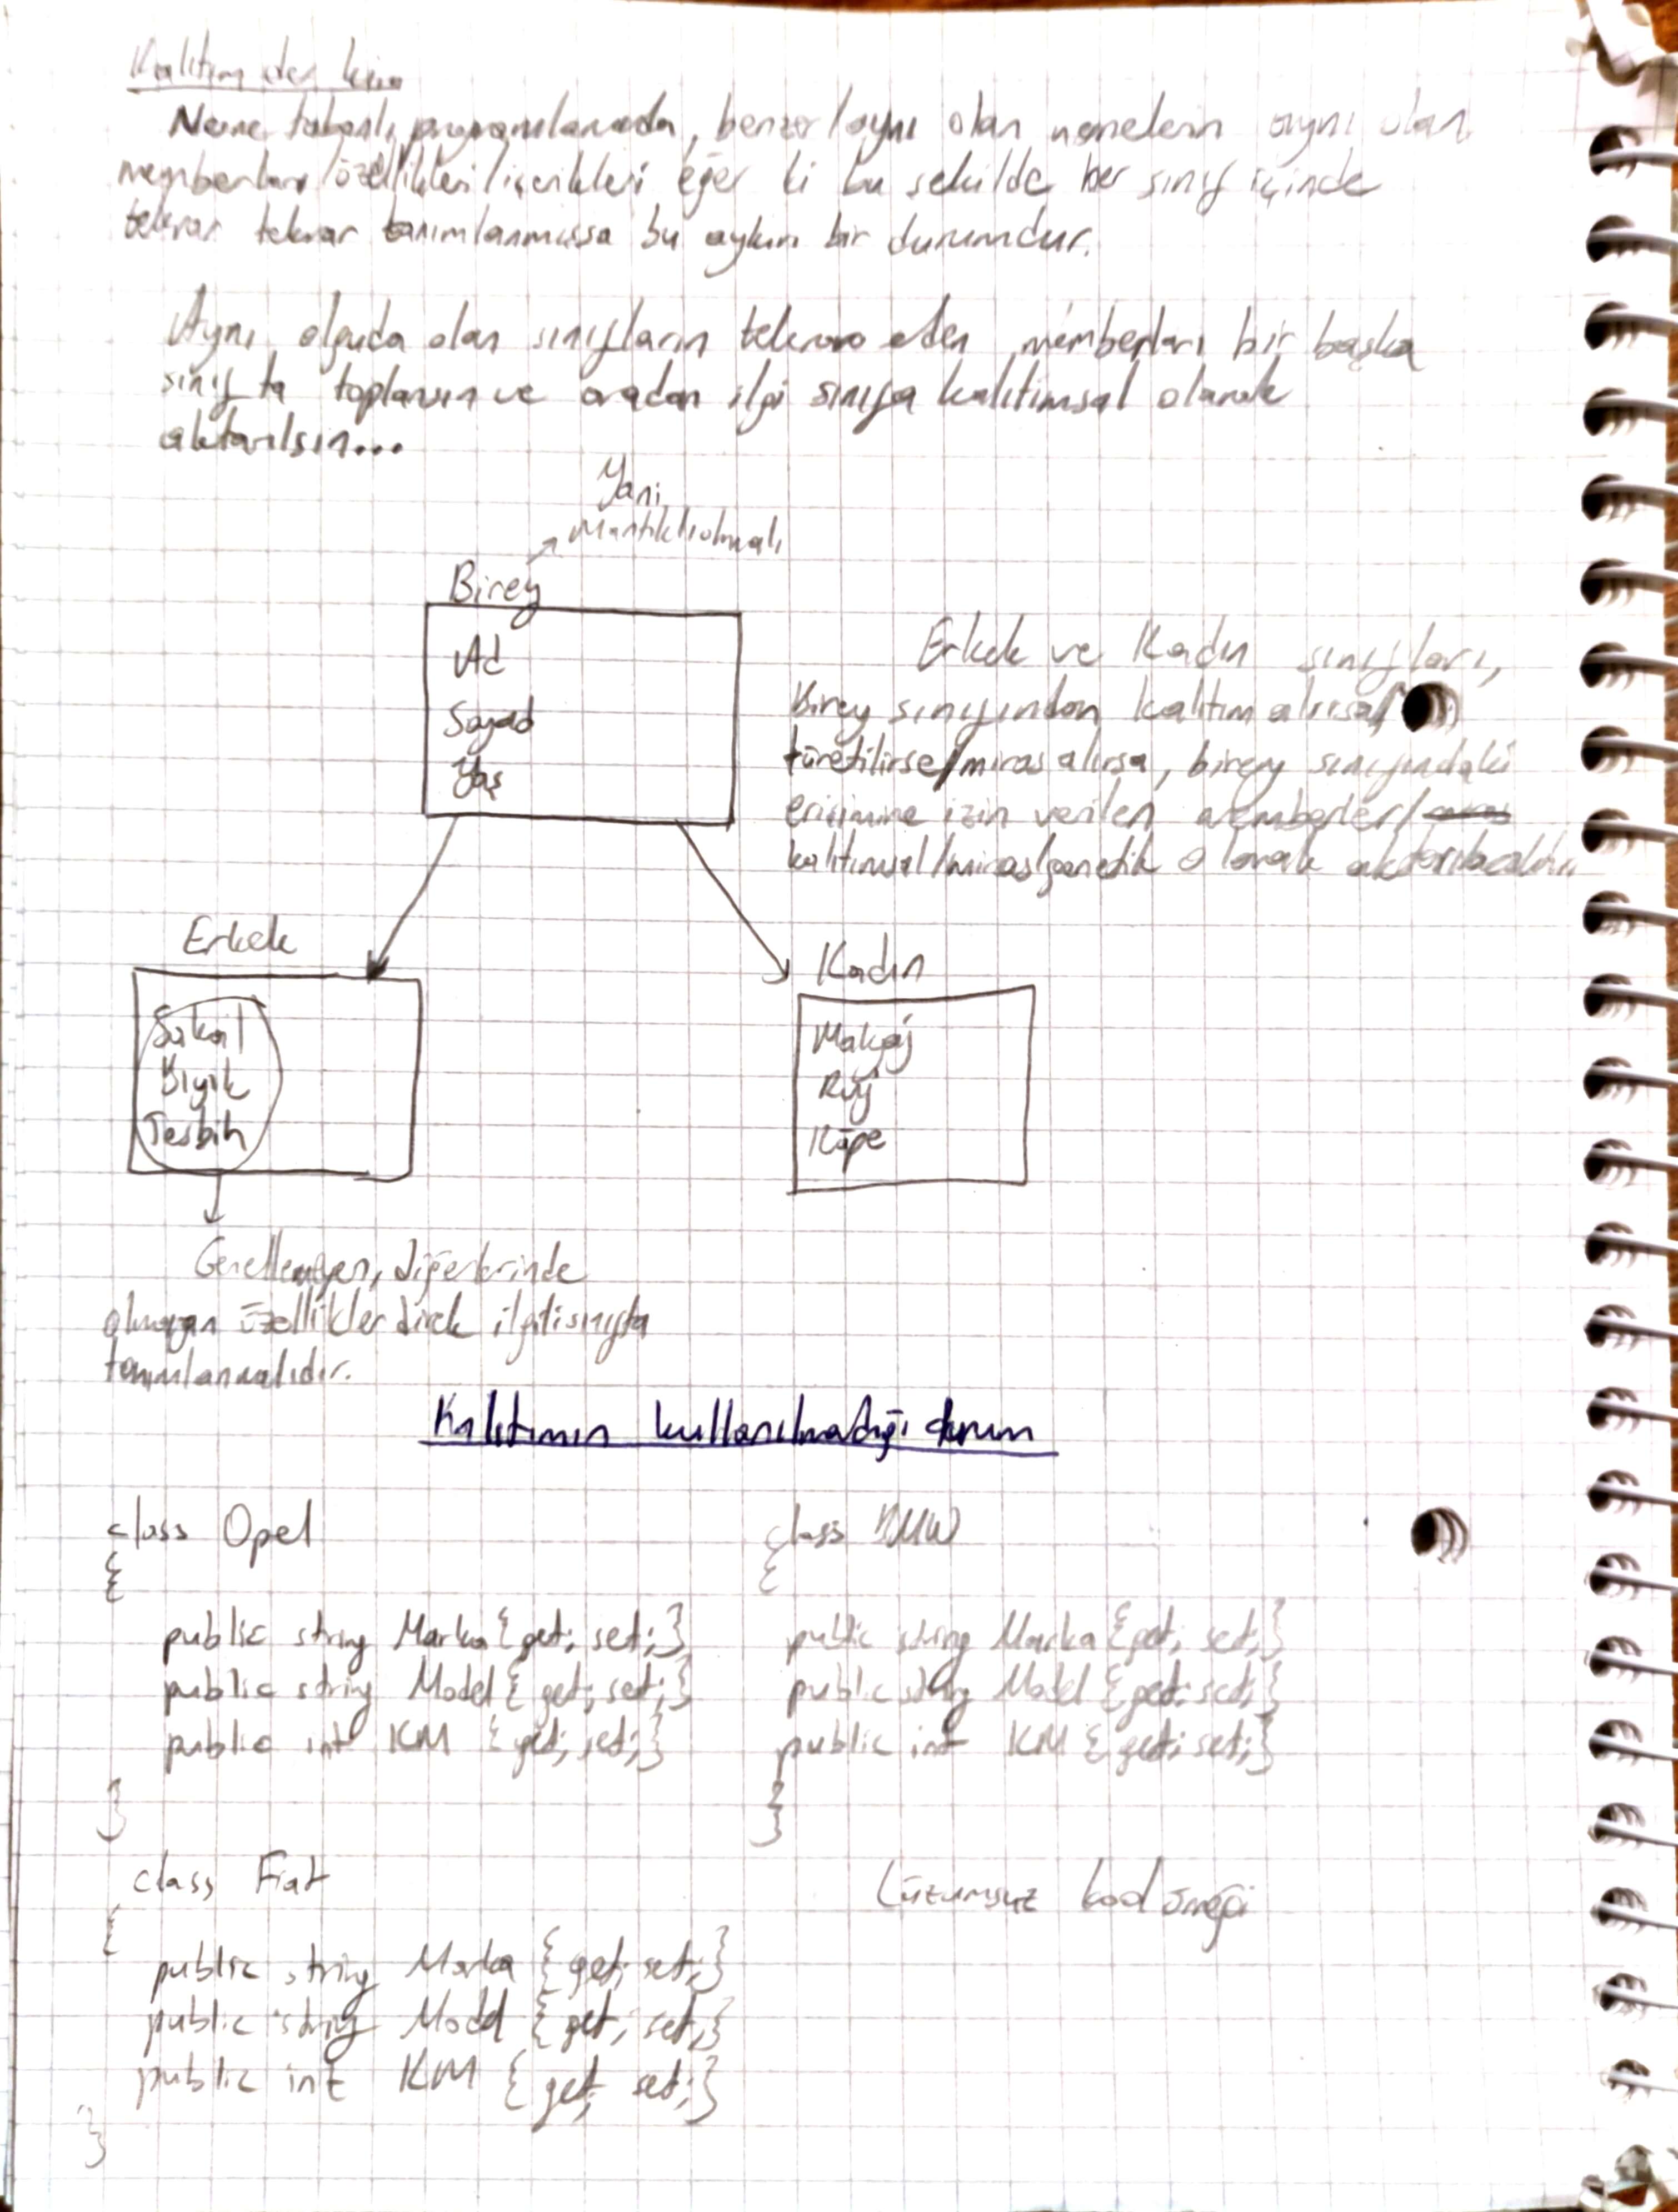 Kalıtım der kin
Nesne tabanlı programlamada, benzer/aynı olan nesnelerin aynı olan
memberları/özellikleri/içerikleri eğer ki bu şekilde her sınıf içinde
tekrar tekrar tanımlanmışsa bu aykırı bir durumdur.
Aynı olguda olan sınıfların tekrar eden memberları bir başka
sınıfta toplansın ve oradan ilgi sınıfa kalıtımsal olarak
aktarılsın...
Yani
Mantıklı olmalı
Birey
Ad
Soyad
Yaş
Erkek ve Kadın sınıfları,
Birey sınıfından kalıtım alırsa/
türetilirse/miras alırsa, birey sınıfındaki
erişimine izin verilen memberler/
kalıtımsal/miras/genetik olarak aktarılacaktır
Erkek
Sakal
Bıyık
Tesbih
Kadın
Makyaj
Ruj
Küpe
Genellenmeyen, diğerlerinde
olmayan özellikler direk ilgili sınıfta
tanımlanmalıdır.
Kalıtımın kullanılmadığı durum
class Opel
{
public string Marka {get; set;}
public string Model {get; set;}
public int KM {get; set;}
}
class BMW
{
public string Marka {get; set;}
public string Model {get; set;}
public int KM {get; set;}
}
class Fiat
{
public string Marka {get; set;}
public string Model {get; set;}
public int KM {get; set;}
}
Lüzumsuz kod örneği